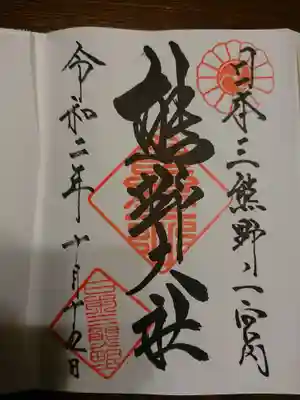 日本三熊野ノ一宮内
熊野大社
令和二年十月十九日